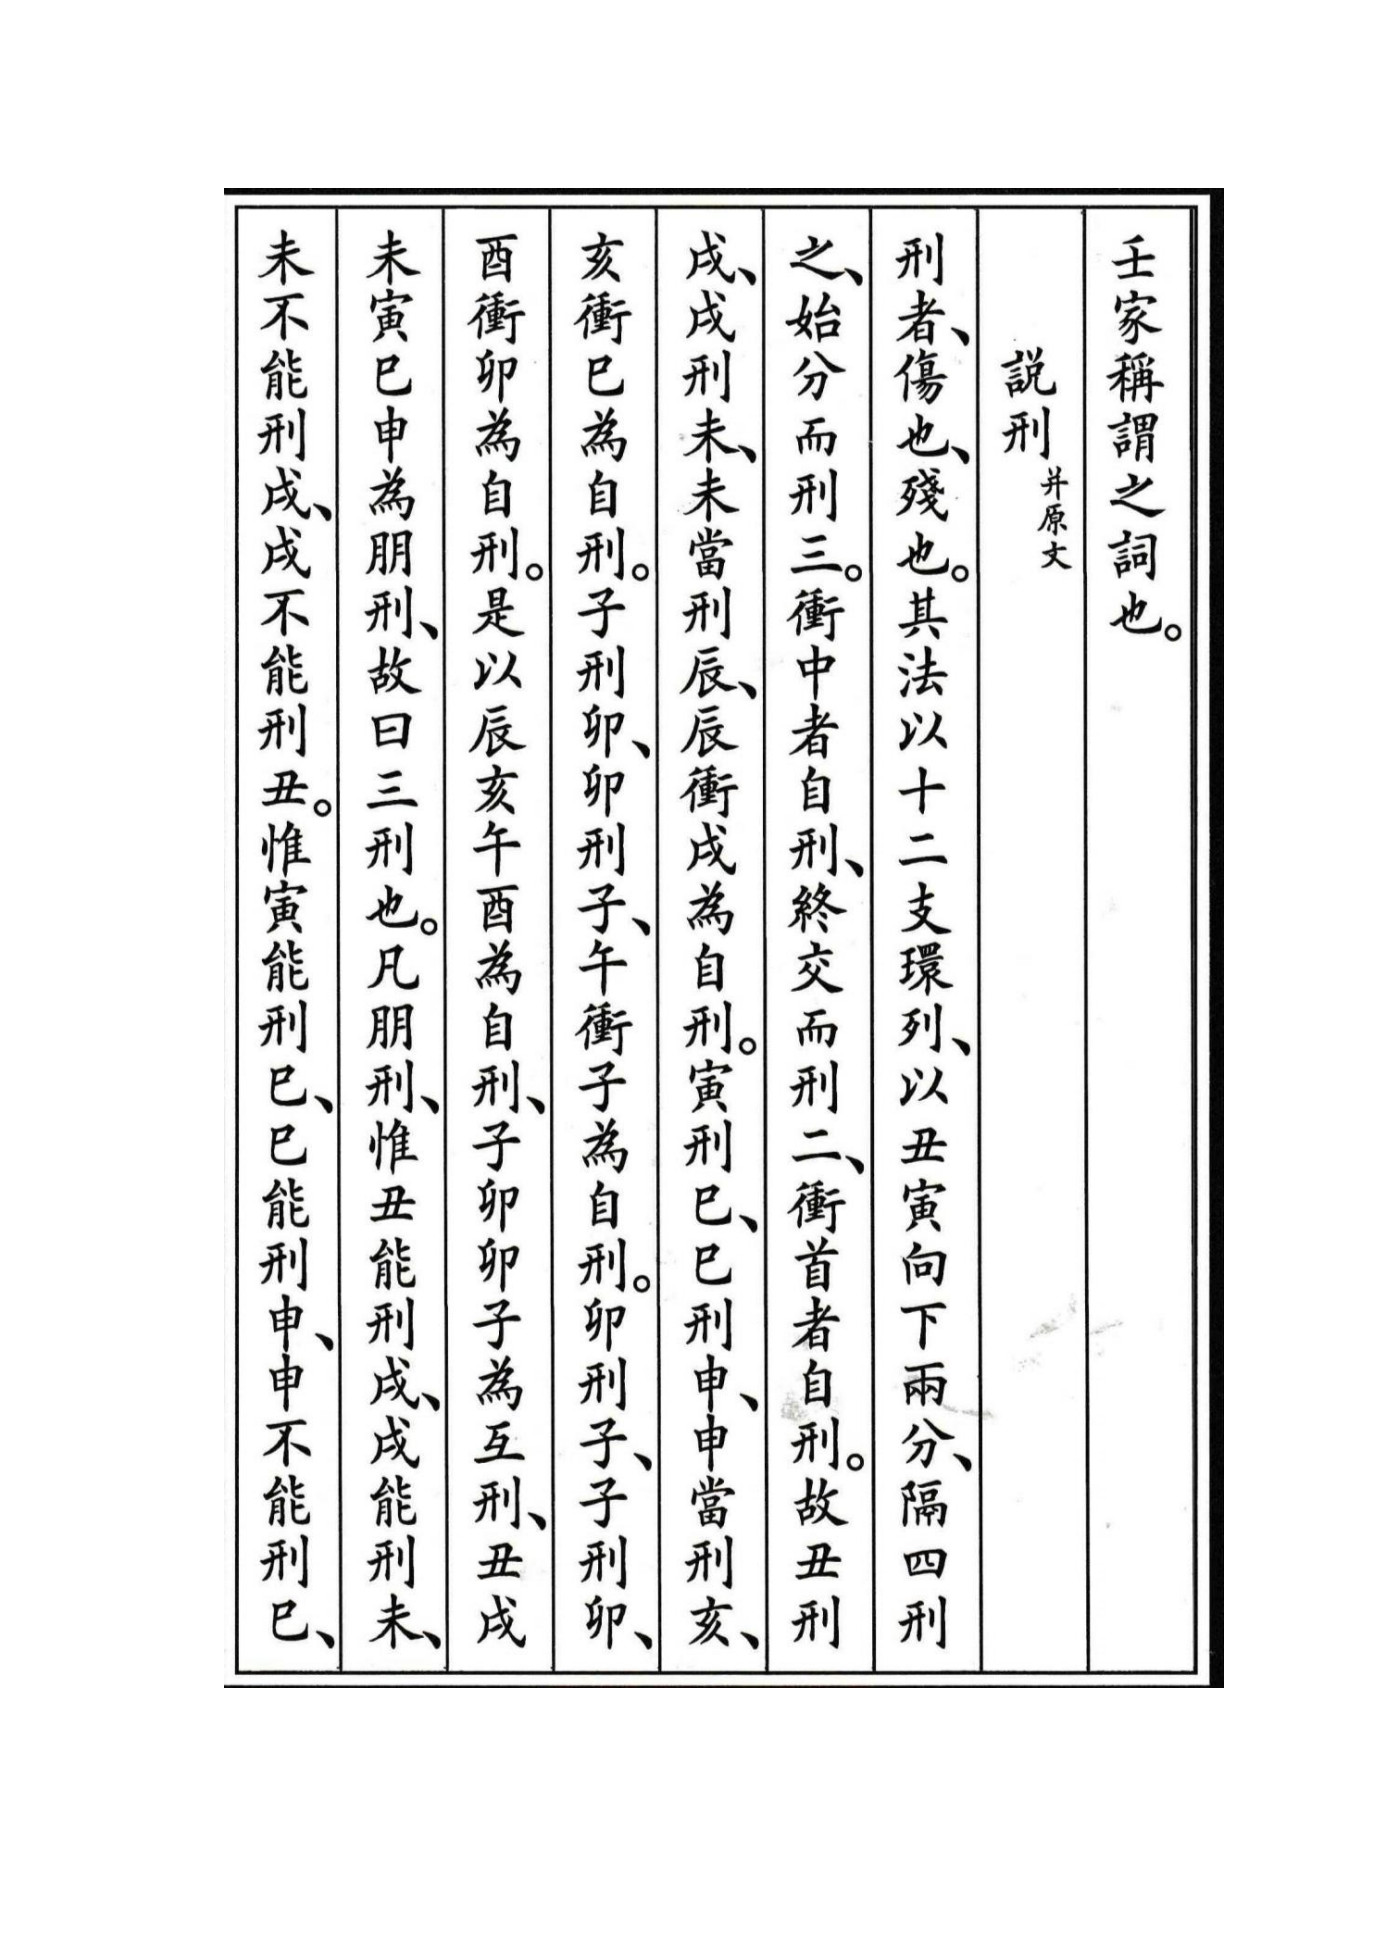 壬家稱謂之詞也。
説刑 并原文
刑者、傷也、殘也。其法以十二支環列、以丑寅向下兩分、隔四刑
之、始分而刑三。衝中者自刑、終交而刑二、衝首者自刑。故丑刑
戌、戌刑未、未當刑辰、辰衝戌為自刑。寅刑巳、巳刑申、申當刑亥、
亥衝巳為自刑。子刑卯、卯刑子、午衝子為自刑。卯刑子、子刑卯、
酉衝卯為自刑。是以辰亥午酉為自刑、子卯卯子為互刑、丑戌
未寅巳申為朋刑、故曰三刑也。凡朋刑、惟丑能刑戌、戌能刑未、
未不能刑戌、戌不能刑丑。惟寅能刑巳、巳能刑申、申不能刑巳、